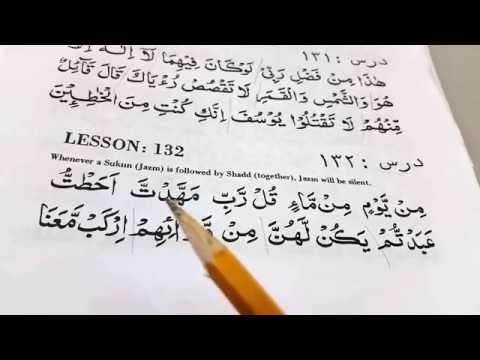 درس : ١٣١
هٰذَا مِنْ فَضْلِ رَبِّيْ لَوْكَانَ فِيْهِمَا لَآ اِلٰهَ
هُوَ وَالشَّمْسِ وَالْقَمَرِ لَا تَقْصُصْ رُءْيَاكَ قَالَ قَآئِلٌ
مِّنْهُمْ لَا تَقْتُلُوْا يُوْسُفَ اِنَّكِ كُنْتِ مِنَ الْخٰطِئِيْنَ
LESSON: 132 درس : ١٣٢
Whenever a Sukun (Jazm) is followed by Shadd (together), Jazm will be silent.
مِنْ يَّوْمٍ مِنْ مَّآءٍ قُلْ رَّبِّ مَهَّدْتُّ اَحَطْتُّ
عَبَدْتُّمْ يَكُنْ لَّهُنَّ مِنْ وَّرَآئِهِمْ اِرْكَبْ مَّعَنَا